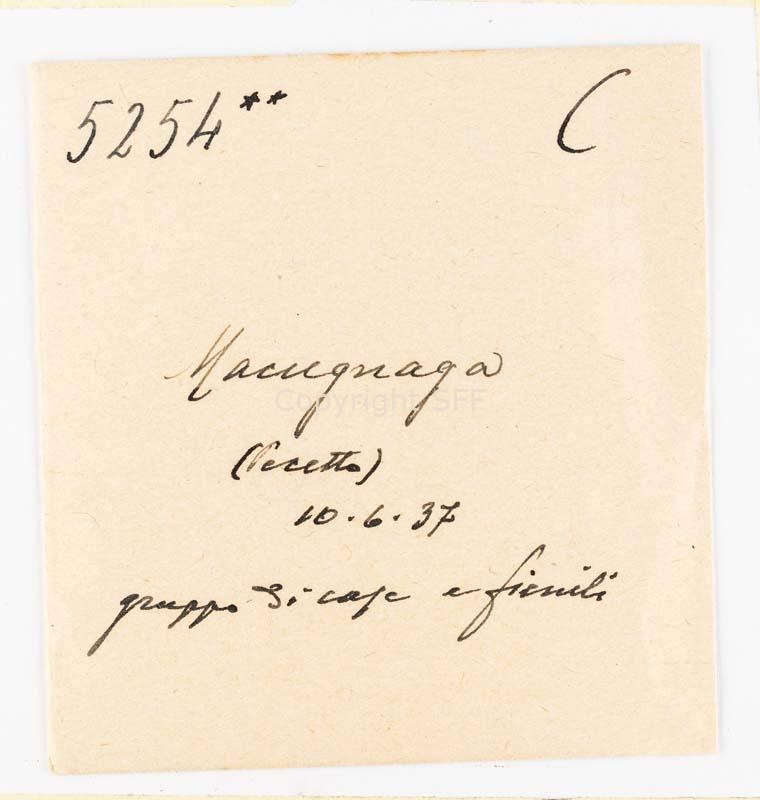 5254** C
Macugnaga
Copyright SFF
(Pecetto)
10.6.37
gruppo di case e fienili